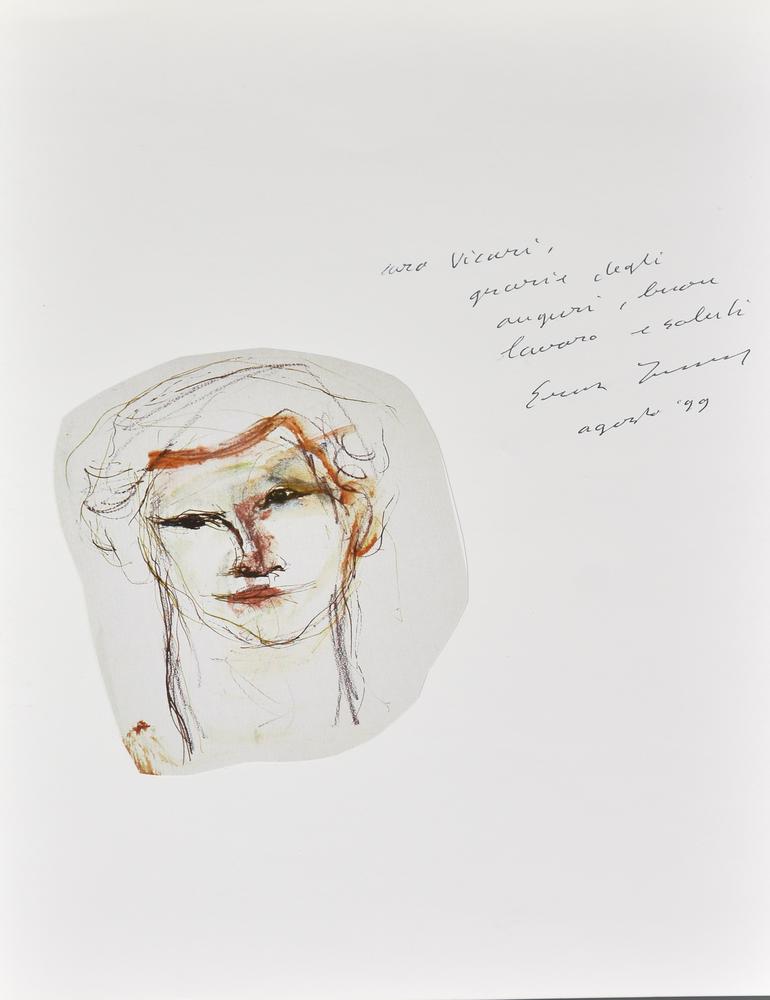 caro Vicari,
grazie degli
auguri, buon
lavoro e saluti
agosto '99